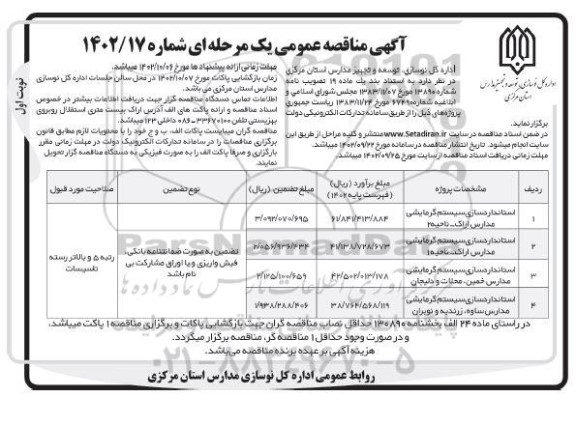 آگهی مناقصه عمومی یک مرحله ای شماره ۱۴۰۲/۱۷
نوبت اول
اداره کل نوسازی، توسعه و تجهیز مدارس
استان مرکزی
اداره کل نوسازی، توسعه و تجهیز مدارس استان مرکزی
در نظر دارد به استناد بند یک ماده ۱۹ تصویب نامه
شماره ۱۳۰۸۹۰ مورخ ۱۳۸۳/۱۱/۰۷ مجلس شورای اسلامی و
ابلاغیه شماره ۶۷۴۹۰ مورخ ۱۳۸۳/۱۱/۲۴ ریاست جمهوری
پروژه‌های ذیل را از طریق سامانه تدارکات الکترونیکی دولت
برگزار نماید.
در ضمن اسناد مناقصه در سایت www.Setadiran.ir منتشر و کلیه مراحل از طریق این
سایت انجام میشود. تاریخ انتشار مناقصه در سامانه مورخ ۱۴۰۲/۰۹/۲۲ میباشد.
مهلت زمانی دریافت اسناد مناقصه از سایت مورخ ۱۴۰۲/۰۹/۲۵ میباشد.
مهلت زمانی ارائه پیشنهاد ها مورخ ۱۴۰۲/۱۰/۰۶ میباشد.
زمان بازگشایی پاکات مورخ ۱۴۰۲/۱۰/۰۷ در محل سالن جلسات اداره کل نوسازی
مدارس استان مرکزی می باشد.
اطلاعات تماس دستگاه مناقصه گزار جهت دریافت اطلاعات بیشتر در خصوص
اسناد مناقصه و ارائه پاکت های الف آدرس اراک بیست متری استقلال روبروی
بهزیستی تلفن ۳۳۶۷۰۱۰۰-۰۸۶ داخلی ۱۲۳ میباشد.
مناقصه گران میبایست پاکات الف، ب و ج خود را با محتویات لازم مطابق قانون
برگزاری مناقصات را در سامانه تدارکات الکترونیک دولت در مهلت زمانی مقرر
بارگزاری و صرفا پاکت الف را به صورت فیزیکی به دستگاه مناقصه گزار تحویل
نمایند.
ردیف مشخصات پروژه مبلغ برآورد (ریال) (فهرست پایه ۱۴۰۲) مبلغ تضمین (ریال) نوع تضمین صلاحیت مورد قبول
۱ استانداردسازی سیستم گرمایشی مدارس اراک ـ ناحیه ۲ ۶۱/۸۴۱/۴۱۳/۸۸۴ ۳/۰۹۲/۰۷۰/۶۹۵
۲ استانداردسازی سیستم گرمایشی مدارس اراک ـ ناحیه ۱ ۴۱/۱۳۸/۷۲۸/۶۷۳ ۲/۰۵۶/۹۳۶/۴۳۴
۳ استانداردسازی سیستم گرمایشی مدارس خمین، محلات و دلیجان ۴۲/۵۰۲/۰۱۳/۱۷۸ ۲/۱۲۵/۱۰۰/۶۵۹
۴ استانداردسازی سیستم گرمایشی مدارس ساوه، زرندیه و نوبران ۳۸/۷۶۴/۵۶۸/۱۱۹ ۱/۹۳۸/۲۸۸/۴۰۶
تضمین به صورت ضمانتنامه بانکی،
فیش واریزی و یا اوراق مشارکت بی
نام باشد
رتبه ۵ و بالاتر رسته
تاسیسات
در راستای ماده ۲۴ الف بخشنامه ۱۳۰۸۹۰ حداقل نصاب مناقصه گران جهت بازگشایی پاکات و برگزاری مناقصه ۱ پاکت میباشد.
و در صورت وجود حداقل ۱ مناقصه گر، مناقصه برگزار میگردد.
هزینه آگهی بر عهده برنده مناقصه می‌باشد.
روابط عمومی اداره کل نوسازی مدارس استان مرکزی